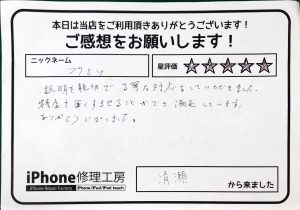 本日は当店をご利用頂きありがとうございます!
ご感想をお願いします!
ニックネーム
フクミツ
星評価
★★★★★
説明も親切で丁寧な対応をしていただきました。
料金も安くすませることができ、満足しています。
ありがとうございました。
iPhone修理工房
iPhone Repair Factory
iPhone/iPad/iPod touch
清瀬
から来ました